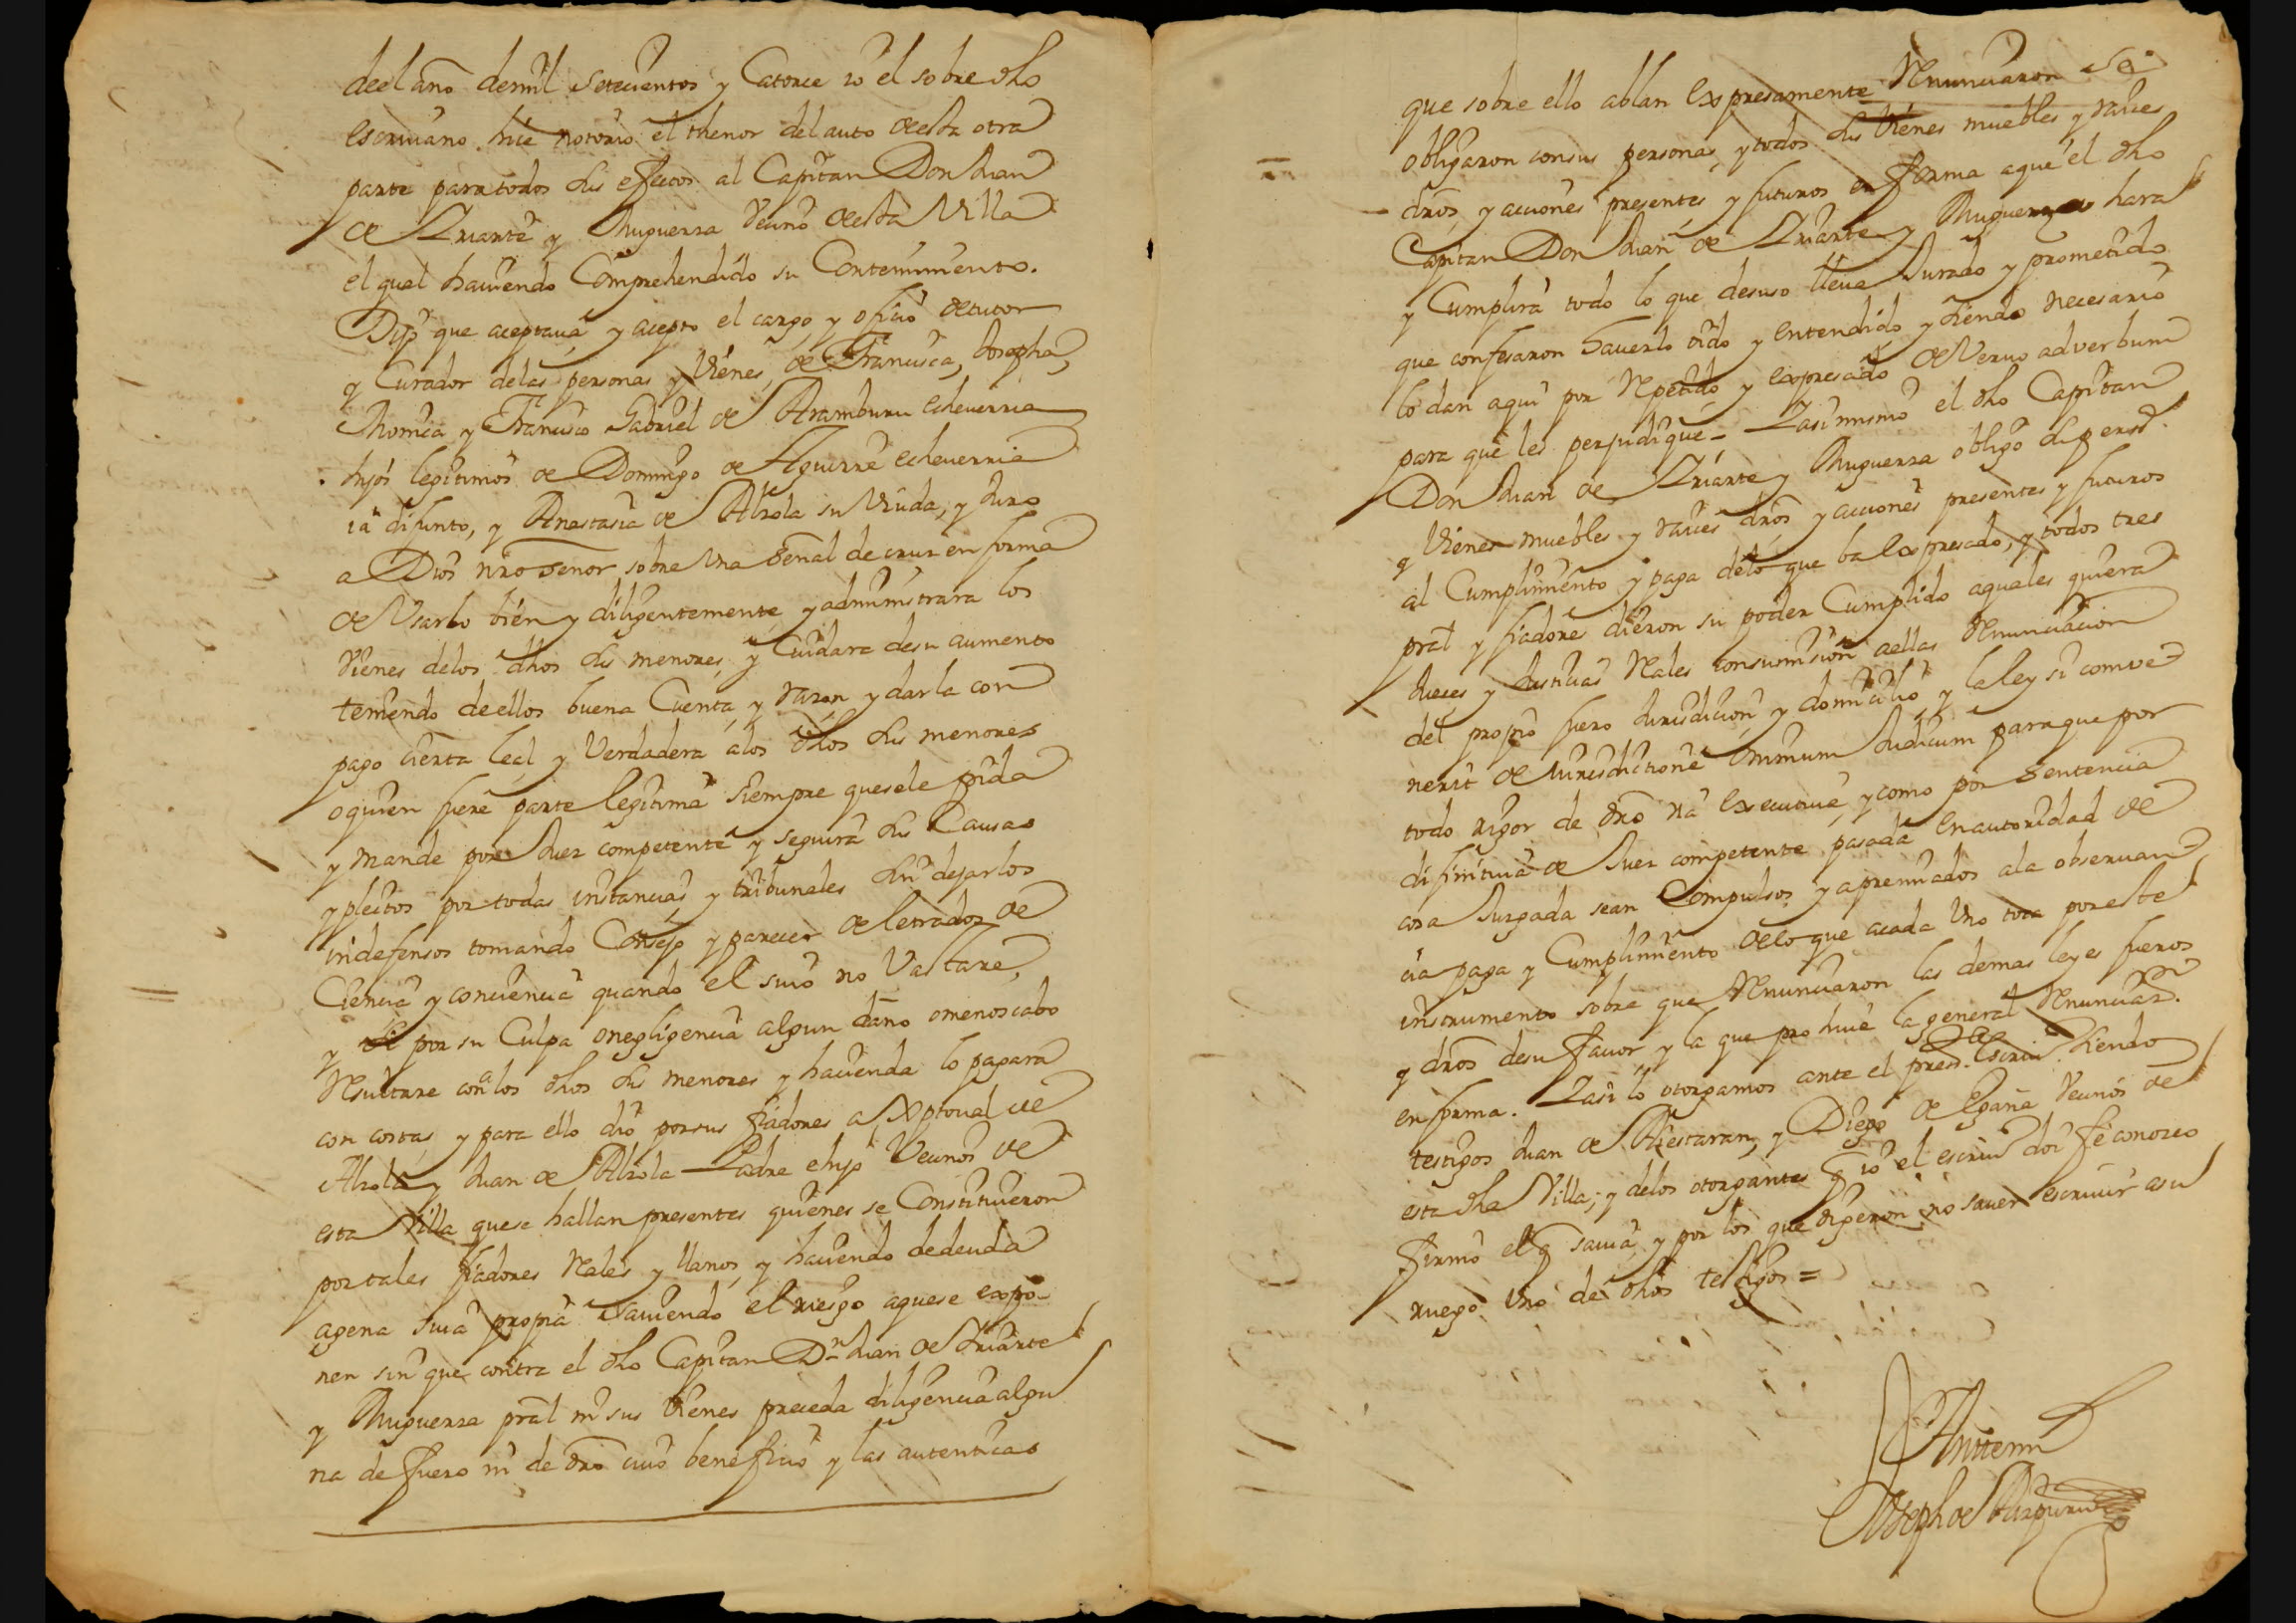 deel año demil Setecientos y Catorce io el sobre dho
escriuano hiçe notorio el thenor del auto de esta otra
parte para todos sus efectos al Capitan Don Juan
de Yriarte y Muguerza Vecino de esta Villa
el qual hauiendo Comprehendido su Contenimiento.
Dijo que aceptaua y acepto el cargo y oficio de tutor
y Curador delas personas y Vienes de Francisca, Josepha,
Thomasa y Francisco Gabriel de Aramburu echeverria
hijos legitimos de Domingo de Aguirre echeverria
ia difunto, y Anastasia de Alzola su Viuda, y Juro
a Dios nro Senor sobre Vna Señal de cruz en forma
de Vsarlo bien y diligentemente y administrara los
vienes delos dhos sus menores y Cuidara desu aumento
teniendo deellos buena Cuenta y razon y darla con
pago cierta leal y Verdadera alos dhos sus menores
oquien fuere parte legitima siempre quesele pida
y mande por Juez competente y seguira sus Causas
y pleitos por todas instancias y tribunales sin dejarlos
indefensos tomando Consejo y parecer de letrados de
Ciencia y conciencia quando el suio no Vastare,
y si por su Culpa onegligencia algun daño omenoscabo
Resultare conlos dhos sus menores y hacienda lo pagara
con costas, y para ello dio porsus fiadores a Xptoual de
Alzola y Juan de Alzola Padre ehijo Vecinos de
esta Villa quese hallan presentes quienes se Constituieron
portales fiadores Reales y llanos y haciendo dedeuda
agena suia propia Sauiendo el riesgo aquese expo-
nen sin que contra el dho Capitan Dn Juan de Yriarte
y Muguerza pral ni sus Vienes preceda diligencia algu
na de fuero ni de dro cuio beneficio y las autenticas
que sobre ello ablan Expresamente Renunciaron Se
obligaron consus personas, y todos sus Vienes muebles y raices
dros, y acciones presentes y futuros en forma aque el dho
Capitan Don Juan de Yriarte y Muguerza hara
y Cumplira todo lo que desuso lleua Jurado y prometido
que confesaron hauerlo oido y entendido y siendo necesario
lo dan aqui por Repetido y expresado de Veruo adverbum
para que les perjudique - Y asi mismo el dho Capitan
Don Juan de Yriarte y Muguerza obligo su persa.
y Vienes muebles y raices dros y acciones presentes y futuros
al Cumplimiento y paga delo que ba expresado, y todos tres
pral y fiadores dieron su poder Cumplido aquales quiera
Jueces y Justicias Reales consumision aellas Renunciacion
del propio fuero Jurisdicion y domicilio y la ley si conve
nerit de Jurisdictione Omnium Judicum paraque por
todo rigor de dro via Executiua, y como por Sentencia
difinitiua de Juez competente pasada en autoridad de
cosa Jurgada sean Compulsos y apremiados ala obseruan
cia paga y Cumplimiento delo que acada Vno toca poreste
instrumento sobre que Renunciaron las demas leyes fueros
y dros desu fauor y la que prohiue la general Renunciaon.
en forma. Y asi lo otorgamos ante el prese. escriuo. siendo
testigos Juan de Aiestaran, y Diego de Egaña Vecinos de
esta dha Villa; y delos otorgantes q io el escriuo doi fe conozco
firmo el q sauia, y por los que digeron no sauer escriuir asu
ruego Vno de dhos testigos =
Anttemi
Joseph de Aizpuru